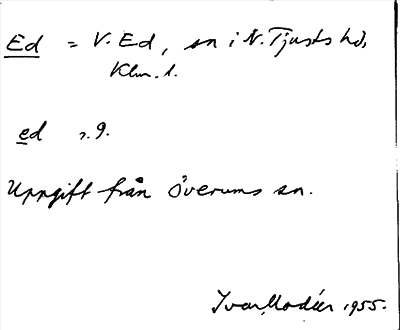 Ed = V. Ed, sn i N. Tjusts hd,
Klm. l.
ed s. 9.
Uppgift från Överums sn.
Ivar Modéer 1955.